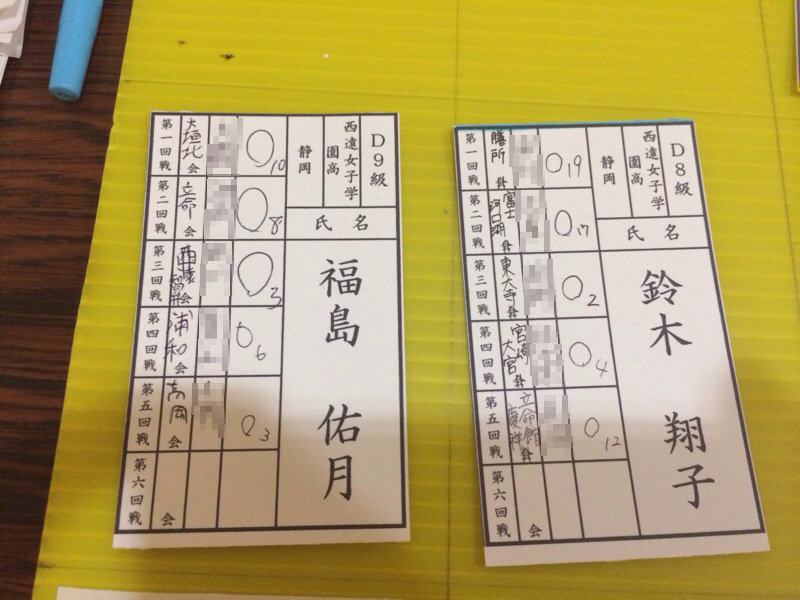 D9級
西遠女子学
園高
静岡
氏名
福島 佑月
第一回戦 大垣北会 ○10
第二回戦 立命会 ○8
第三回戦 会 ○3
第四回戦 浦和会 ○6
第五回戦 高岡会 ○3
第六回戦 会
D8級
西遠女子学
園高
静岡
氏名
鈴木 翔子
第一回戦 膳所会 ○19
第二回戦 富士河口湖会 ○17
第三回戦 東大寺会 ○2
第四回戦 宮崎大宮会 ○4
第五回戦 立命館慶祥会 ○12
第六回戦 会